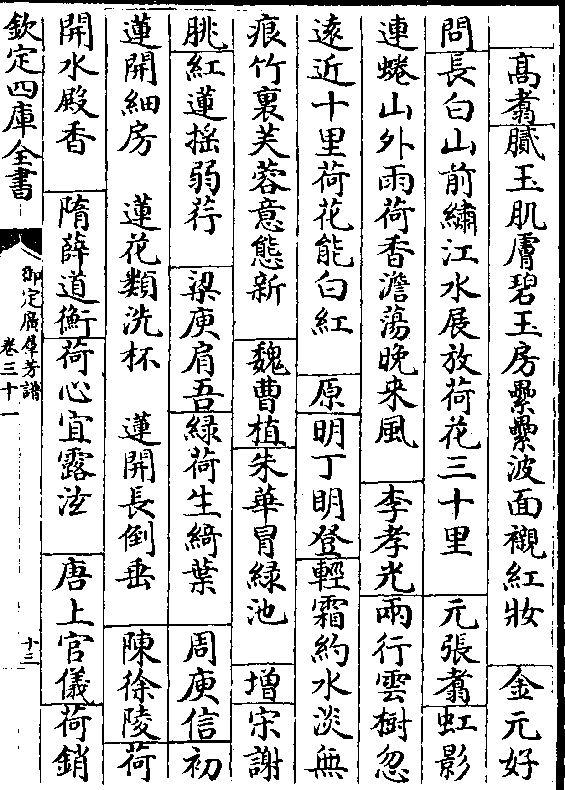 髙翥膩玉肌膚碧玉房纍纍波面襯紅妝　金元好
問長白山前繡江水展放荷花三十里　元張翥虹影
連蜷山外雨荷香澹蕩晚來風　李孝光兩行雲樹忽
遠近十里荷花能白紅　原明丁明登輕霜約水淡無
痕竹裏芙蓉意態新　魏曹植朱華冐緑池　增宋謝
朓紅蓮揺弱荇　梁庾肩吾緑荷生綺葉　周庾信初
蓮開細房　蓮花類洗杯　蓮開長倒垂　陳徐陵荷
開水殿香　隋薛道衡荷心宜露泫　唐上官儀荷銷
欽定四庫全書
御定廣羣芳譜
卷三十一
十三